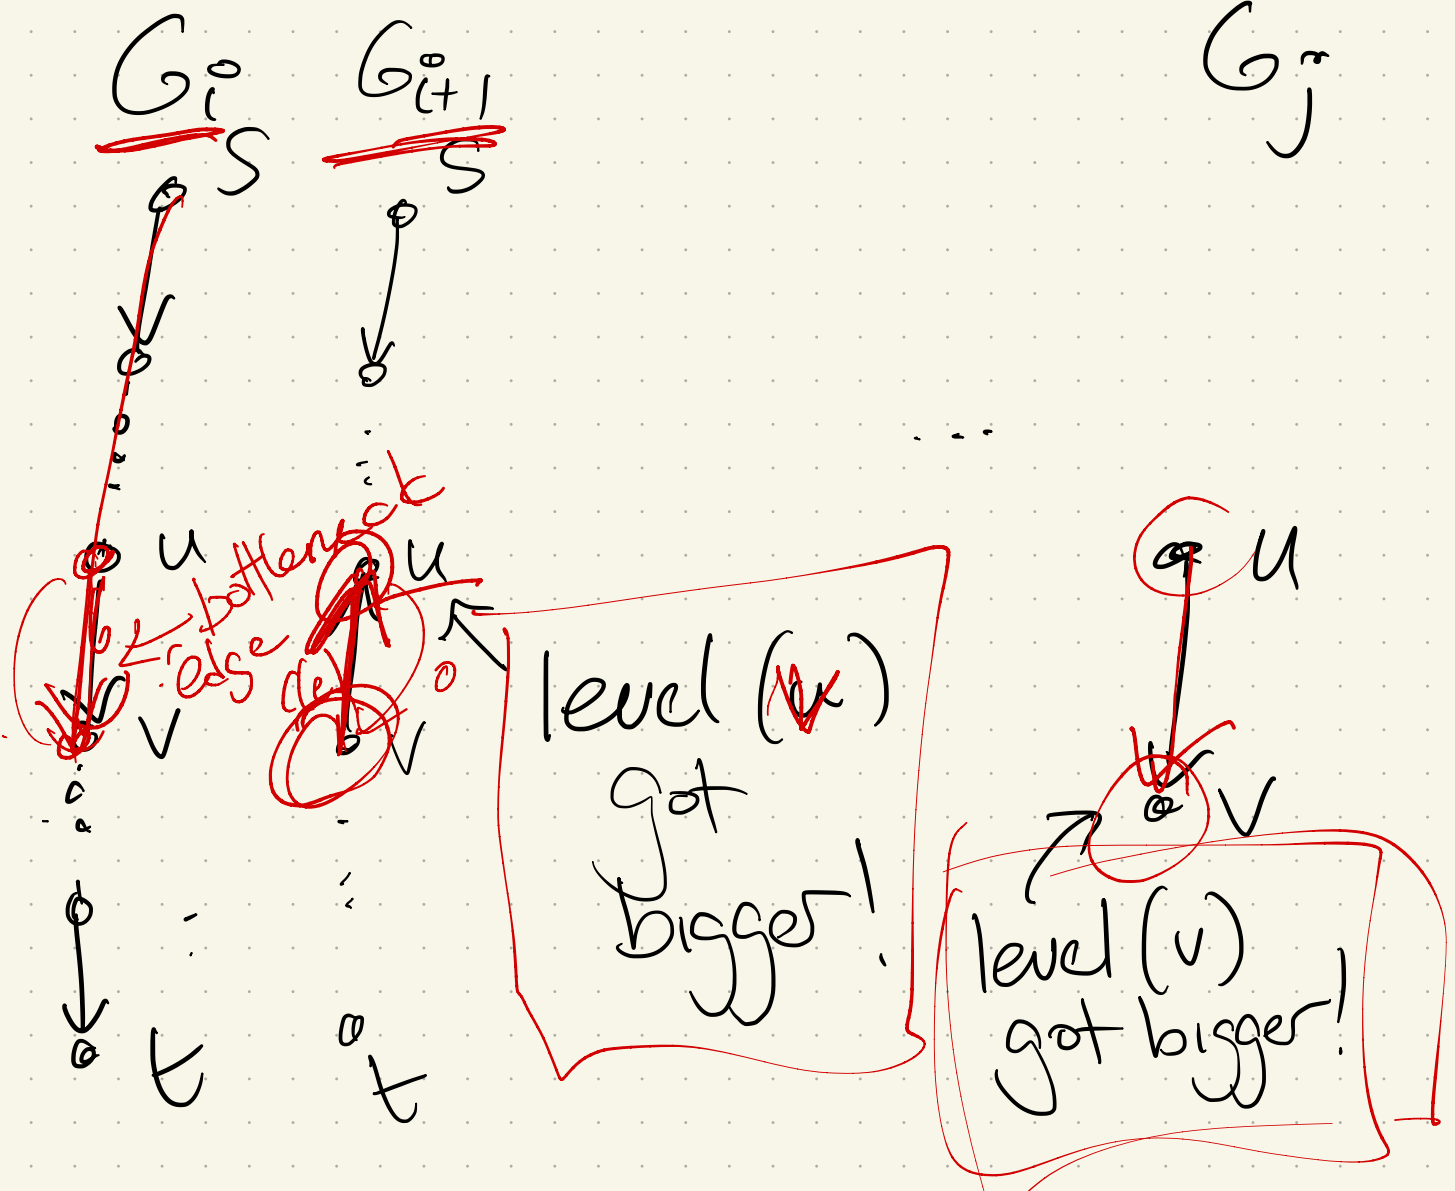 Gi Gi+1 Gj
S S
bottleneck
edge
u u u
level (u)
got
bigger!
v v v
level (v)
got bigger!
t t